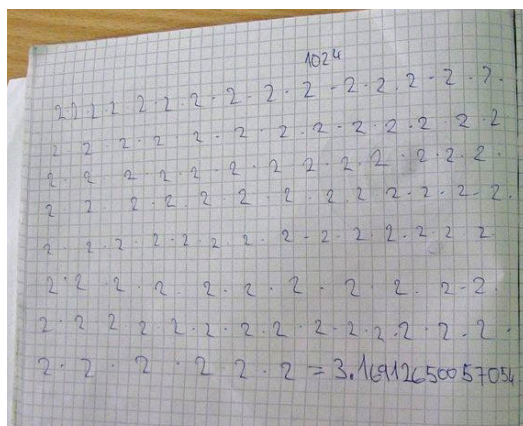 1024
2·2·2·2·2·2·2·2·2·2·2·2·2·2·2·
2·2·2·2·2·2·2·2·2·2·2·2·2·2
2·2·2·2·2·2·2·2·2·2·2·2·2·2·
2·2·2·2·2·2·2·2·2·2·2·2·2·2·
2·2·2·2·2·2·2·2·2·2·2·2·2·2
2·2·2·2·2·2·2·2·2·2·2·
2·2·2·2·2·2·2·2·2·2·2·2·2·2·
2·2·2·2·2·2=3.16912650057054